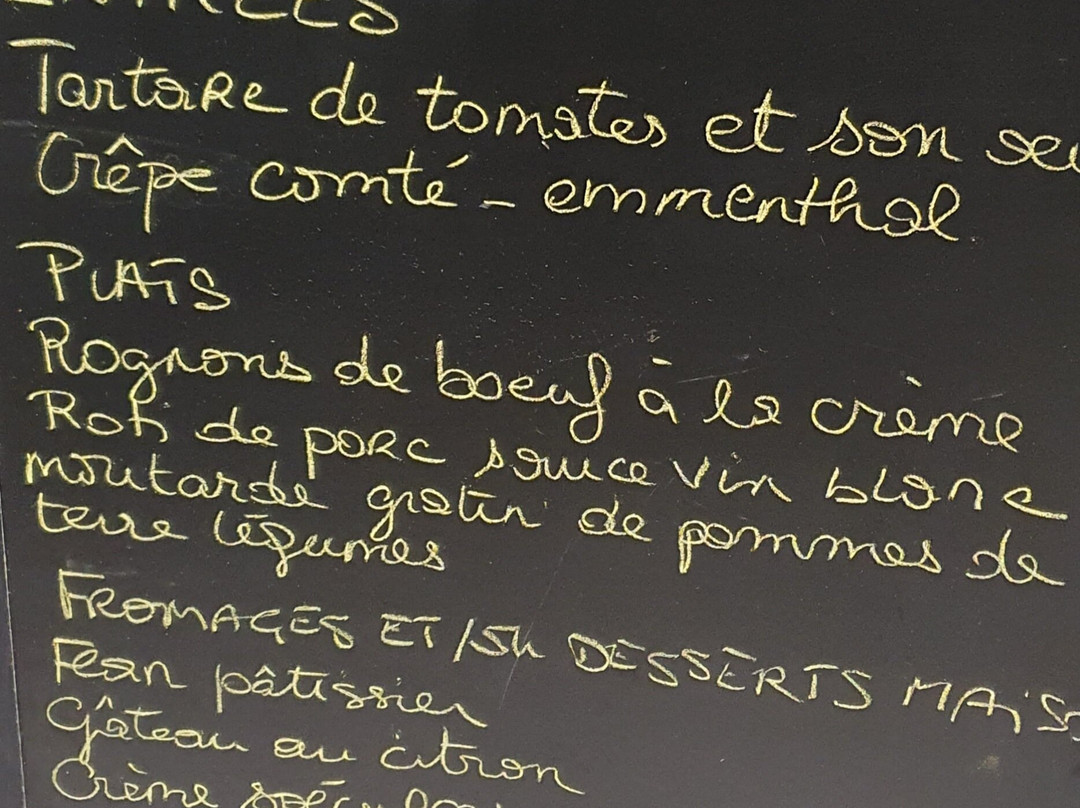 Tartare de tomates et son
Crêpe comté - emmenthal
PLATS
Rognons de boeuf à la crème
Roti de porc sauce vin blanc
moutarde gratin de pommes de
terre légumes
FROMAGES ET/OU DESSERTS MAIS
Flan pâtissier
Gâteau au citron
Crème